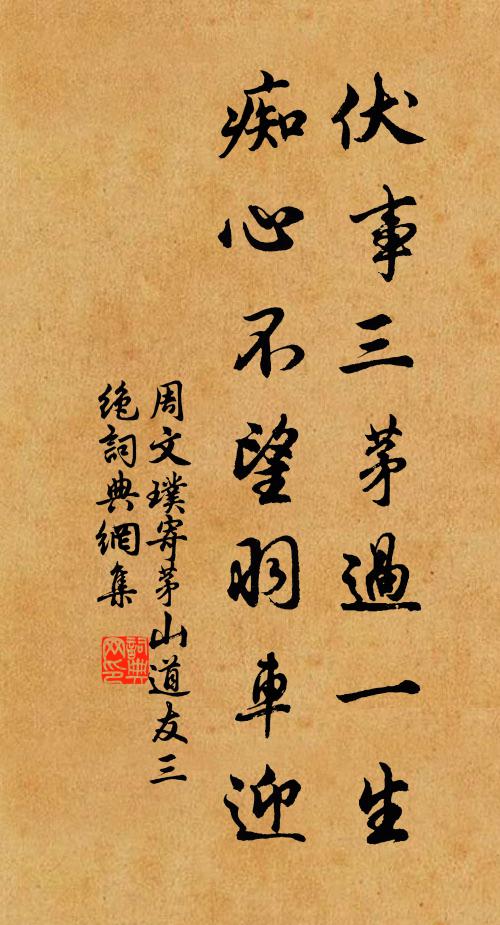 伏事三茅過一生
痴心不望羽車迎
周文璞寄茅山道友三
絶詞典網集
詞典
网印